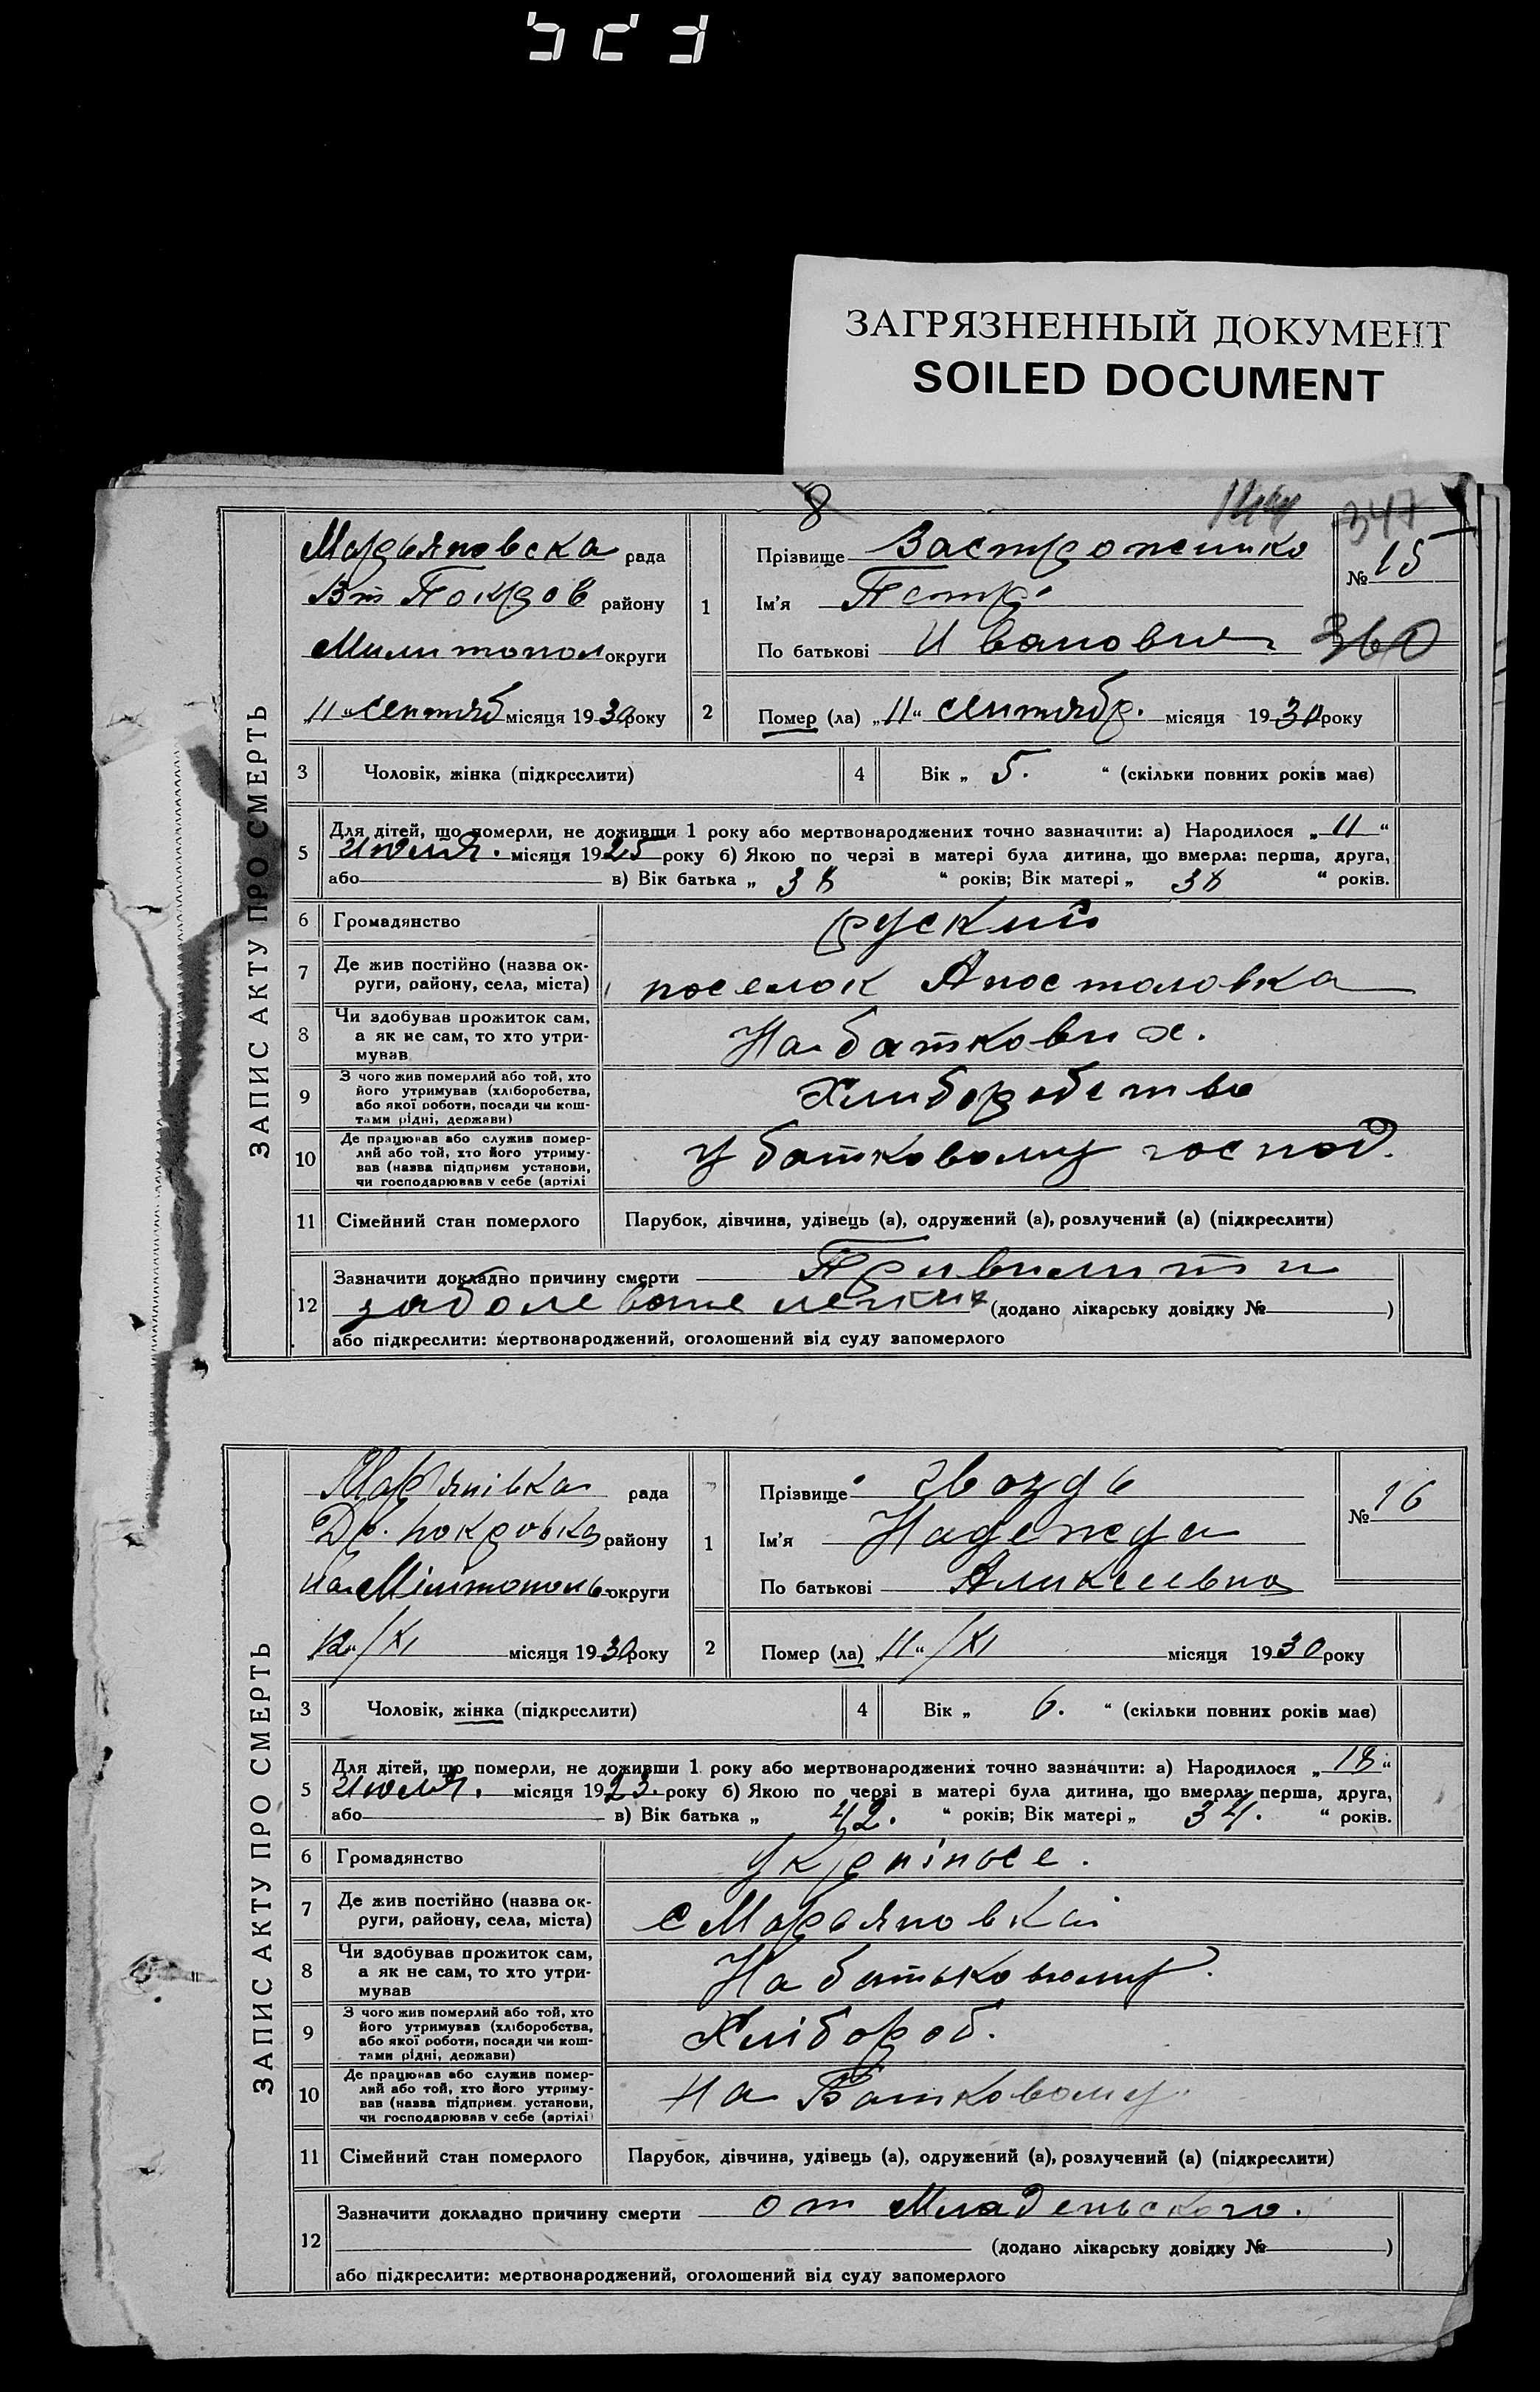 ЗАГРЯЗНЕННЫЙ ДОКУМЕНТ
SOILED DOCUMENT
8
144
347
ЗАПИС АКТУ ПРО СМЕРТЬ
Марьяновска рада
Вт Покров району
Милитопол округи
„11“ сентяб місяця 1930 року
1
Прізвище
Ім’я Петр
По батькові Иванович
№ 15
360
2
Помер (ла) „11“ сентябр. місяця 1930 року
3
Чоловік, жінка (підкреслити)
4
Вік „ 5. “ (скільки повних років має)
5
Для дітей, що померли, не доживши 1 року або мертвонароджених точно зазначити: а) Народилося „11“
июля. місяця 1925 року б) Якою по черзі в матері була дитина, що вмерла: перша, друга,
або в) Вік батька „ 38 “ років; Вік матері „ 38 “ років.
6
Громадянство
руский
7
Де жив постійно (назва ок-
руги, району, села, міста)
поселок Апостоловка
8
Чи здобував прожиток сам,
а як не сам, то хто утри-
мував
На батькових.
9
З чого жив померлий або той, хто
його утримував (хліборобства,
або якої роботи, посади чи кош-
тами рідні, держави)
Хлиборобство
10
Де працював або служив помер-
лий або той, хто його утриму-
вав (назва підприєм установи,
чи господарював у себе (артілі
У батковому господ.
11
Сімейний стан померлого
Парубок, дівчина, удівець (а), одружений (а), розлучений (а) (підкреслити)
12
Зазначити докладно причину смерти
заболевание легких (додано лікарську довідку № )
або підкреслити: мертвонароджений, оголошений від суду запомерлого
ЗАПИС АКТУ ПРО СМЕРТЬ
Мар’янівка рада
Др. покровка району
на Мелітополь округи
„12“/XI місяця 1930 року
1
Прізвище Гвоздь
Ім’я Надежда
По батькові Аликсеевна
№ 16
2
Помер (ла) „11“/XI місяця 1930 року
3
Чоловік, жінка (підкреслити)
4
Вік „ 6. “ (скільки повних років має)
5
Для дітей, що померли, не доживши 1 року або мертвонароджених точно зазначити: а) Народилося „18“
июля. місяця 1923. року б) Якою по черзі в матері була дитина, що вмерла: перша, друга,
або в) Вік батька „ 42. “ років; Вік матері „ 34. “ років.
6
Громадянство
7
Де жив постійно (назва ок-
руги, району, села, міста)
с Марьяновка
8
Чи здобував прожиток сам,
а як не сам, то хто утри-
мував
На батьковому.
9
З чого жив померлий або той, хто
його утримував (хліборобства,
або якої роботи, посади чи кош-
тами рідні, держави)
Хлібороб.
10
Де працював або служив помер-
лий або той, хто його утриму-
вав (назва підприєм. установи,
чи господарював у себе (артілі)
на Батковому
11
Сімейний стан померлого
Парубок, дівчина, удівець (а), одружений (а), розлучений (а) (підкреслити)
12
Зазначити докладно причину смерти от Младеньского.
(додано лікарську довідку № )
або підкреслити: мертвонароджений, оголошений від суду запомерлого